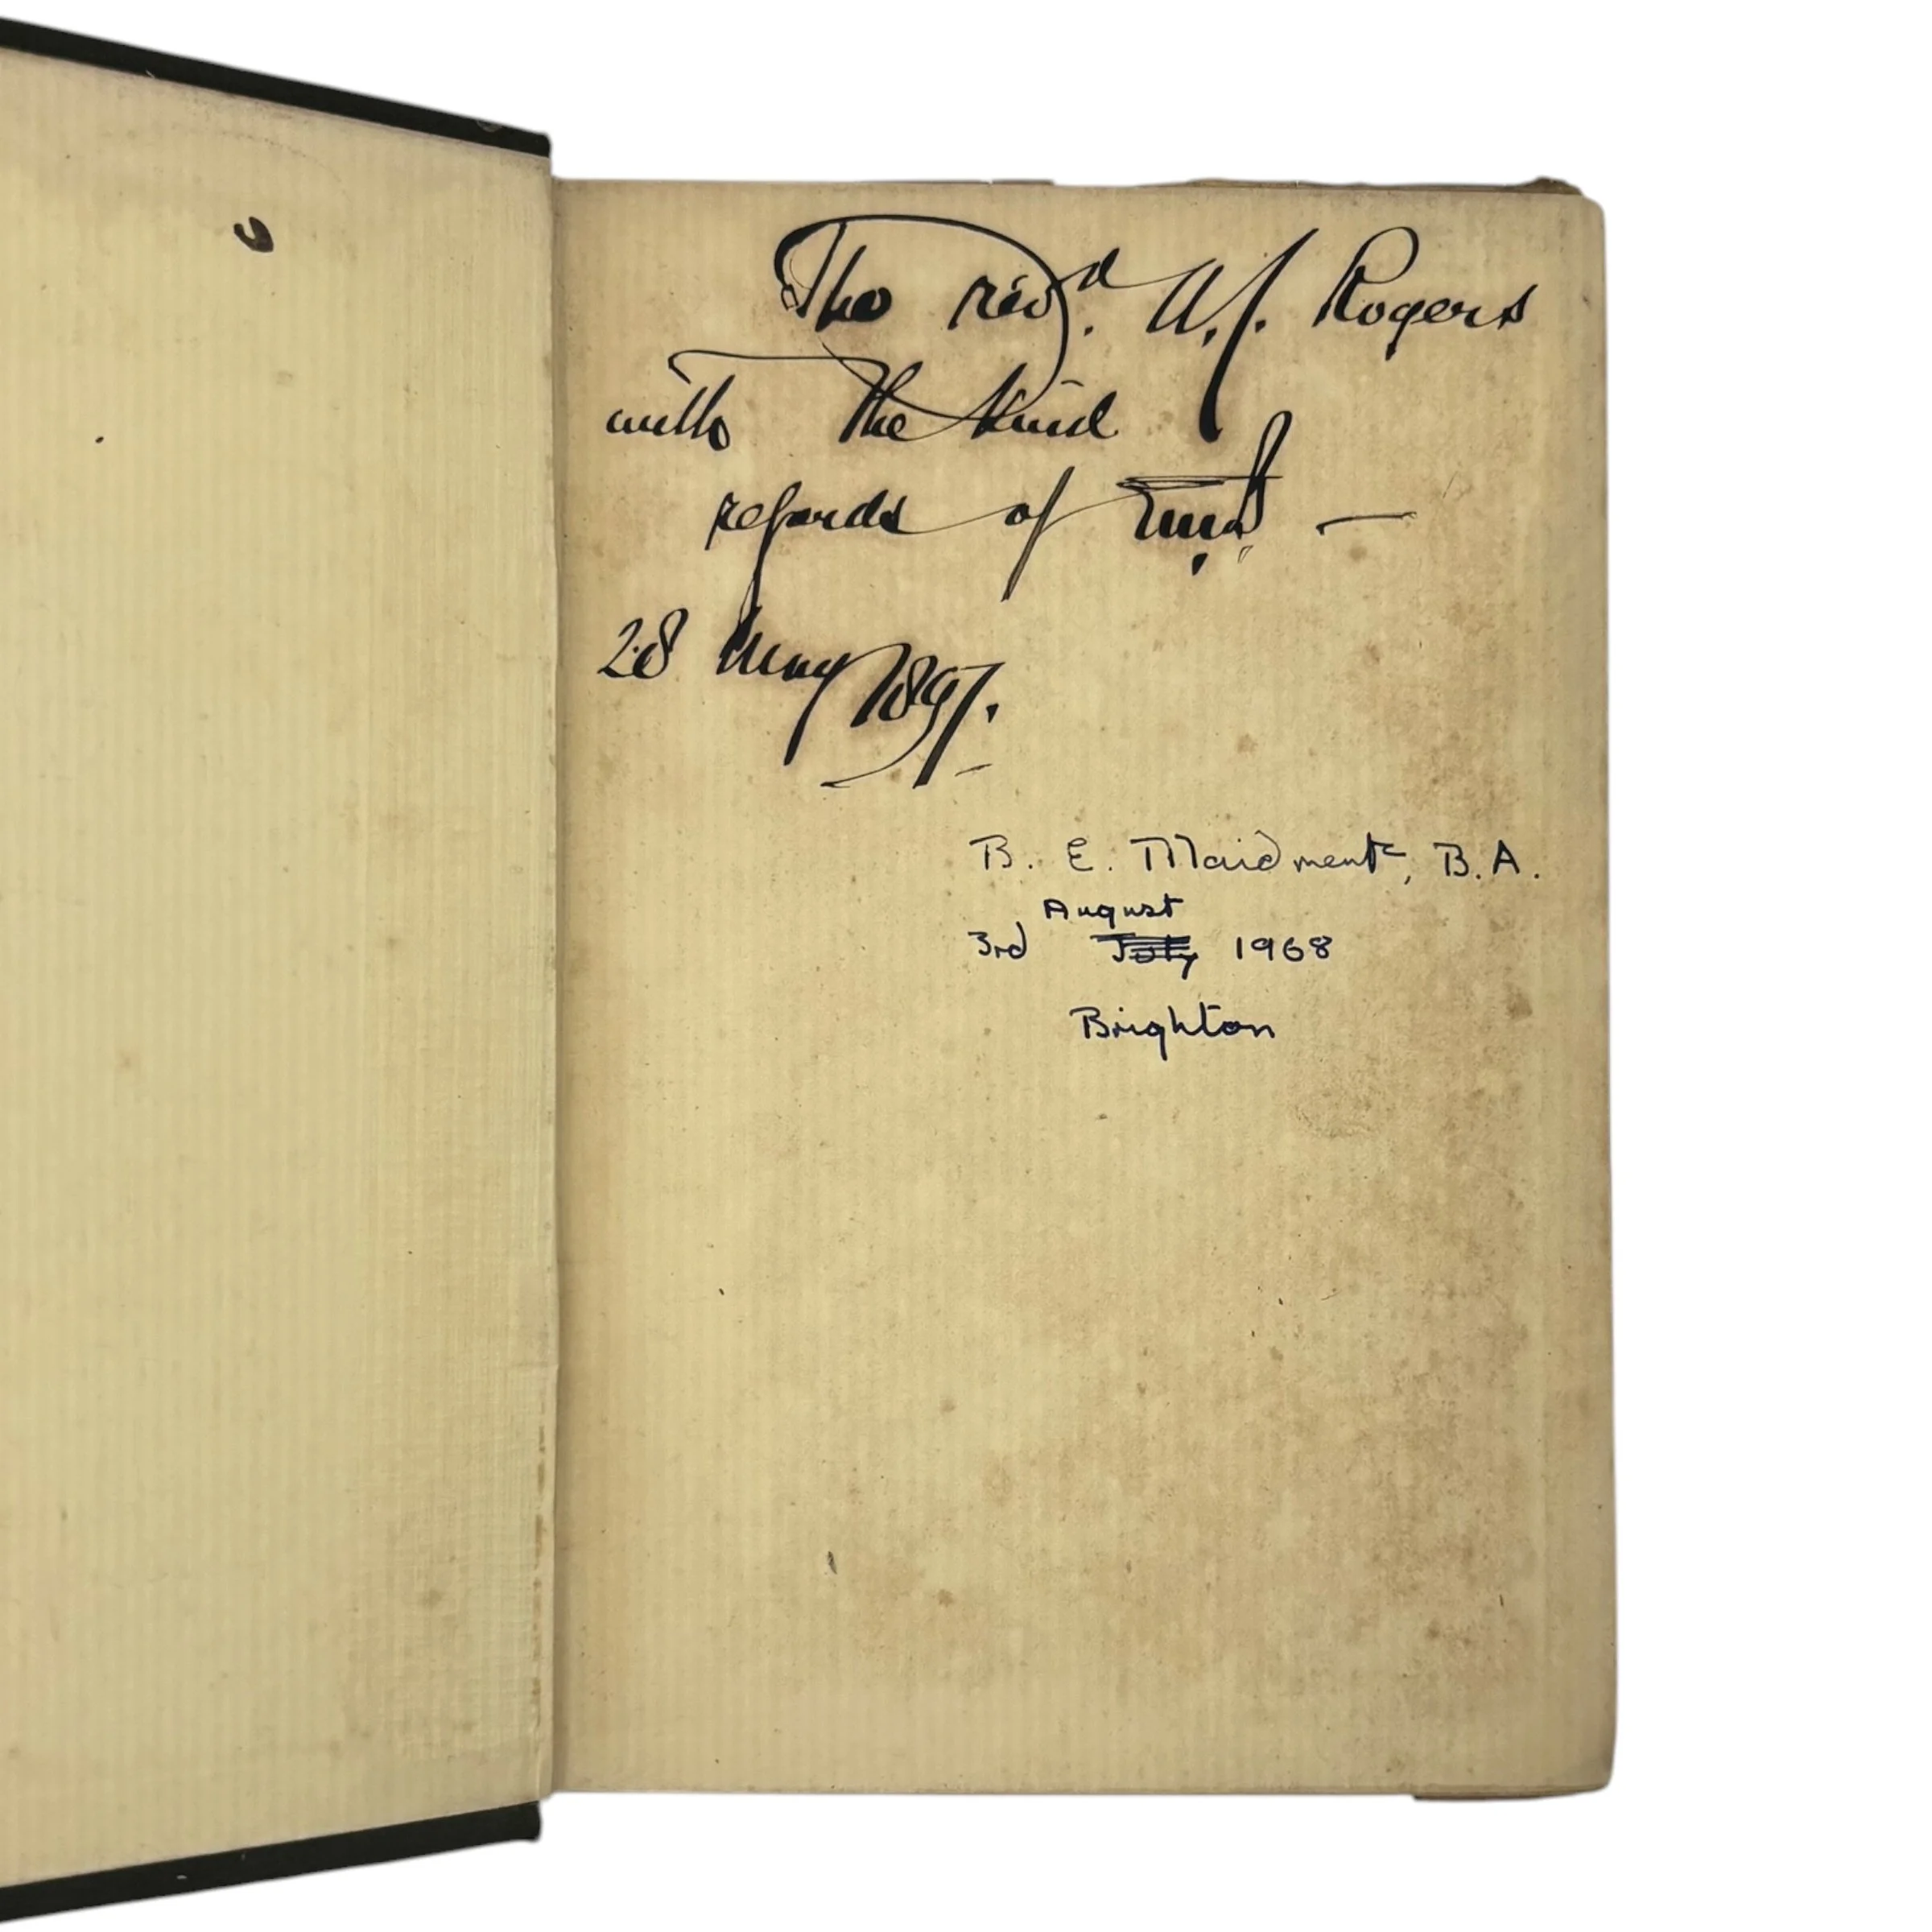 The revd. W. J. Rogers
with the kind
regards of
28 May 1897.
B. E. Maidment, B.A.
August
3rd July 1968
Brighton